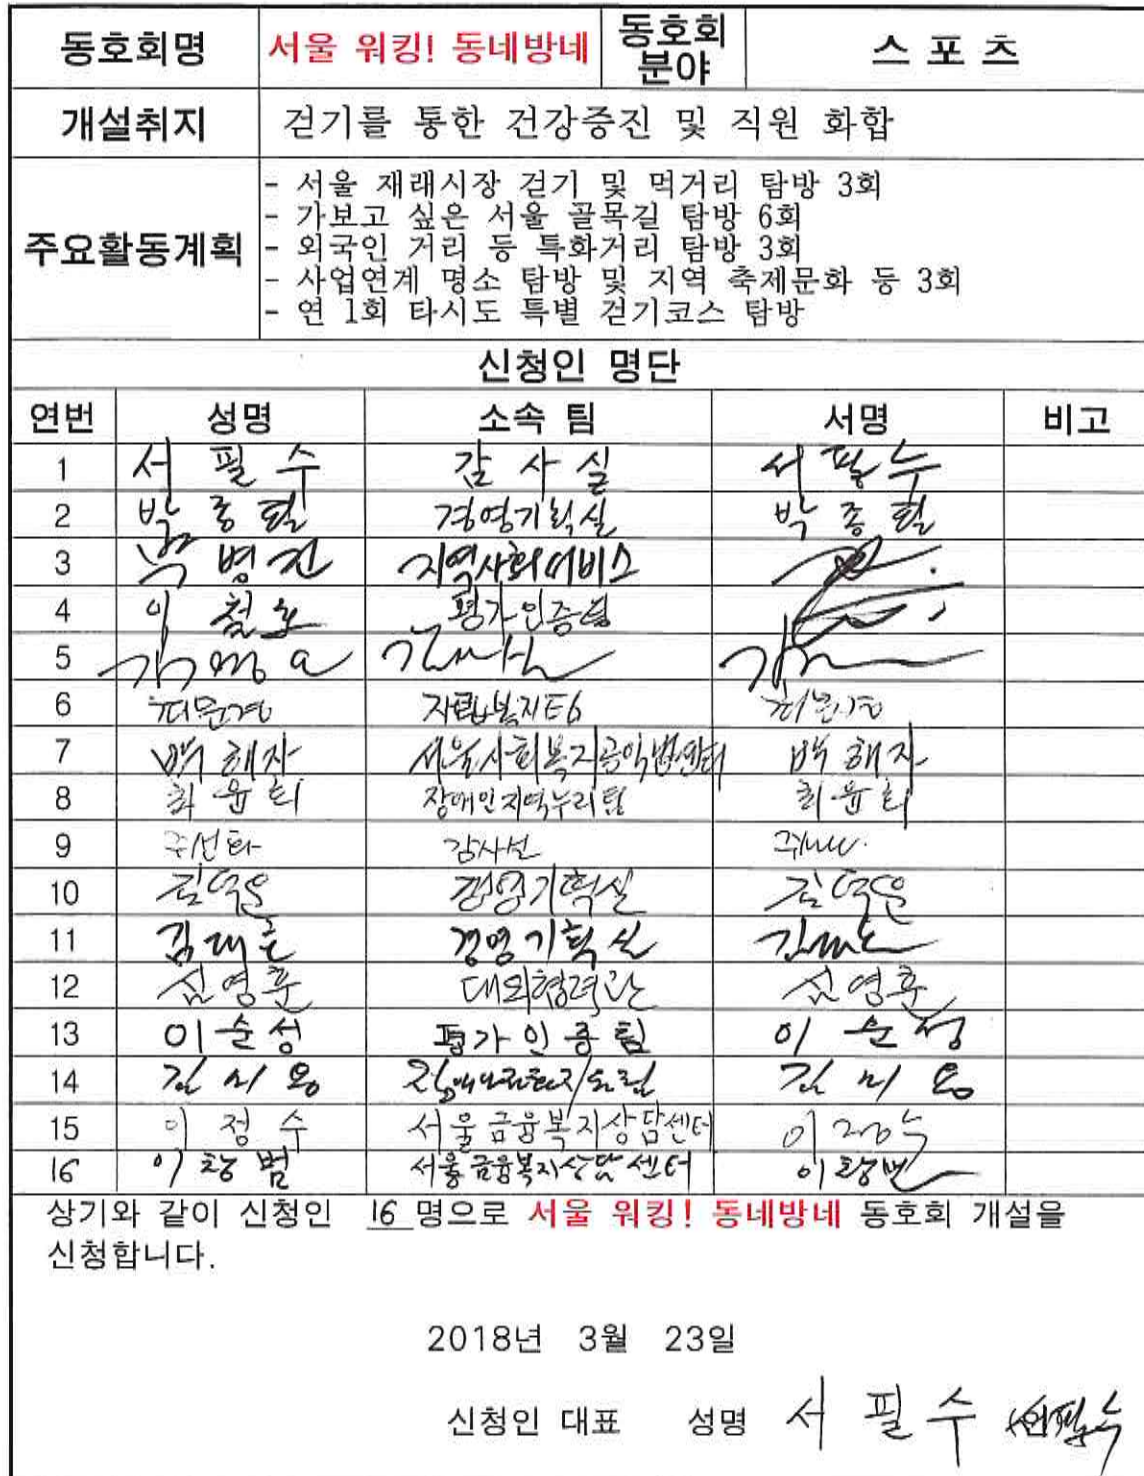 동호회명 서울 워킹! 동네방네 동호회 분야 스 포 츠
개설취지 걷기를 통한 건강증진 및 직원 화합
주요활동계획
- 서울 재래시장 걷기 및 먹거리 탐방 3회
- 가보고 싶은 서울 골목길 탐방 6회
- 외국인 거리 등 특화거리 탐방 3회
- 사업연계 명소 탐방 및 지역 축제문화 등 3회
- 연 1회 타시도 특별 걷기코스 탐방
신청인 명단
연번 성명 소속 팀 서명 비고
1 서 필 수 감 사 실 서 필 수
2 박 종 필 경영기획실 박 종 필
3 박 병 진 지역사회서비스
4 이 철 호 평가인증팀
5
6 자립복지
7 백 해 자 서울사회복지공익법센터 백 해 자
8 최 윤 희 장애인지역누리팀 최 윤 희
9 주선화 감사실
10 경영기획실
11 김대훈 경영기획실
12 심영훈 대외협력관 심영훈
13 이 순 성 평가인증팀 이 순 성
14
15 이 정 수 서울금융복지상담센터 이 정 수
16 이 창 범 서울금융복지상담센터 이창범
상기와 같이 신청인 16 명으로 서울 워킹! 동네방네 동호회 개설을
신청합니다.
2018년 3월 23일
신청인 대표 성명 서 필 수